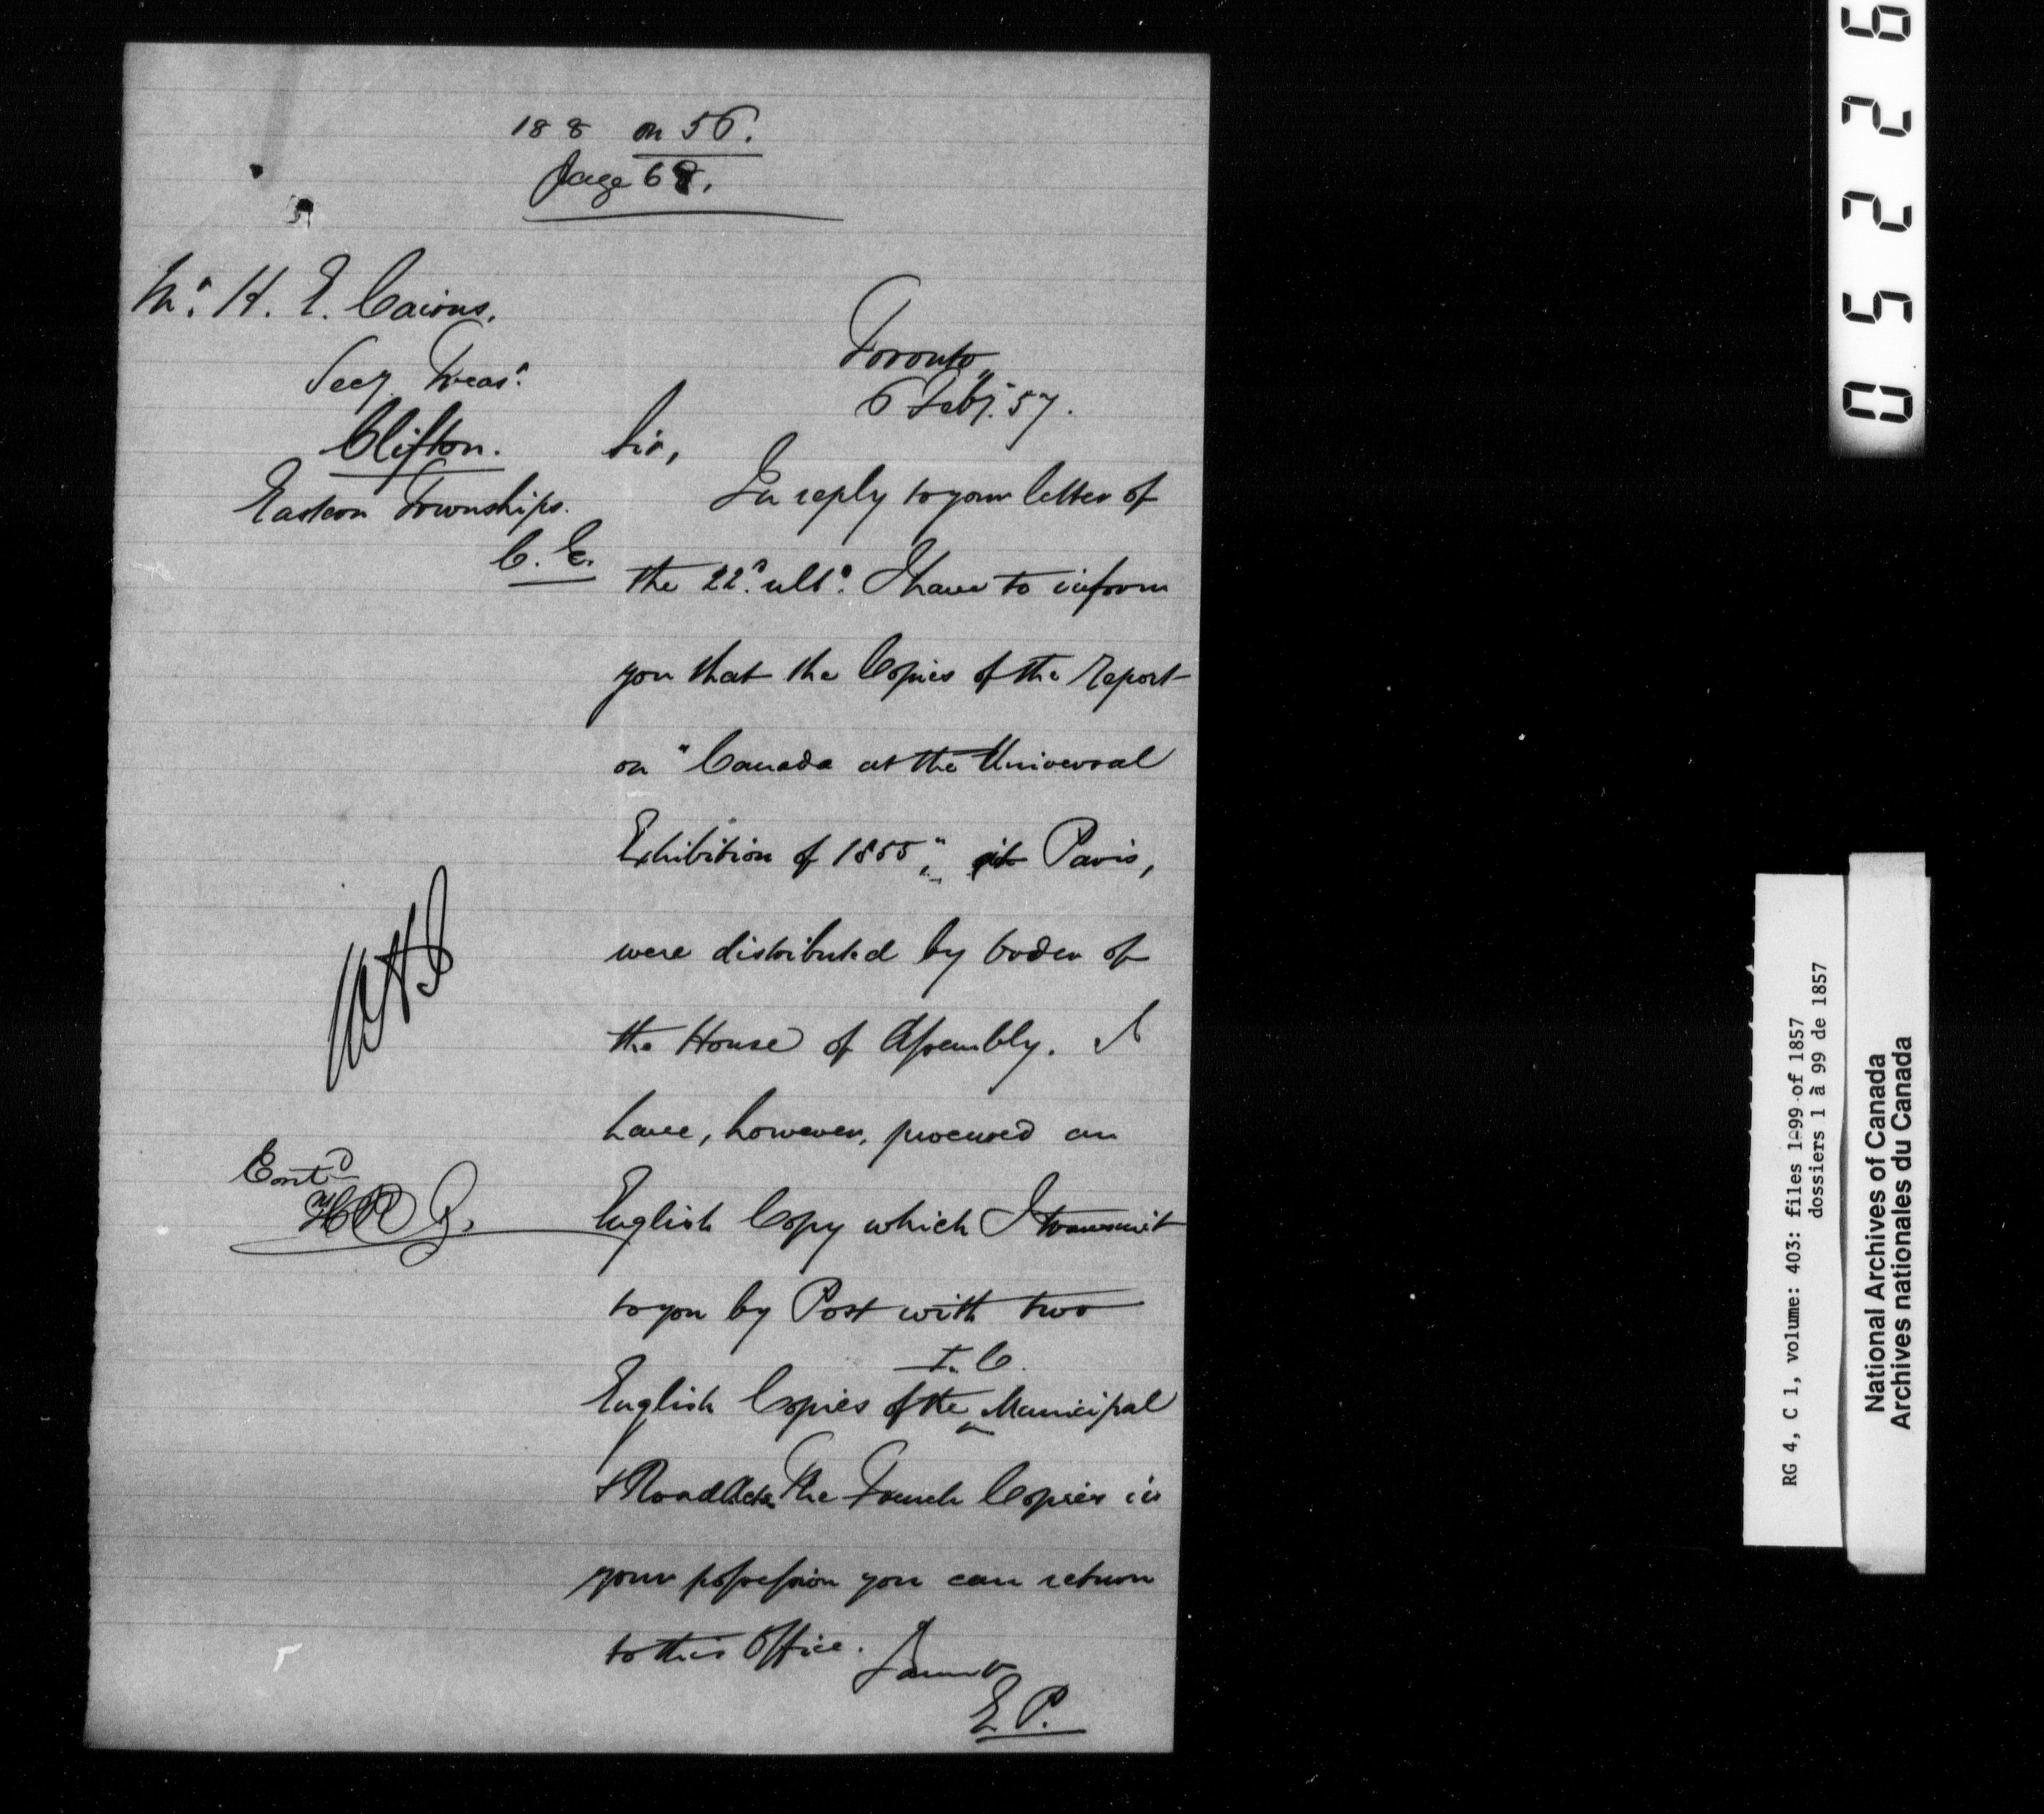 188 on 56.
page 68.
Mr. H. E. Cairns.
Secy. Treasr.
Clifton.
Eastern Townships.
C. E.
Toronto,
6 Feby. 57.
Sir,
In reply to your letter of
the 22d. ulto. I have to inform
you that the Copies of the report
on "Canada at the Universal
Exhibition of 1855", at Paris,
were distributed by Order of
the House of Assembly. I
have, however, procured an
English Copy which I transmit
to you by Post with two
L. C.
English Copies of the ‸ Municipal
& Road Acts. The French Copies in
your possession you can return
to this Office.
E P.
Entd
05226
RG 4, C 1, volume: 403: files 1-99 of 1857
dossiers 1 à 99 de 1857
National Archives of Canada
Archives nationales du Canada